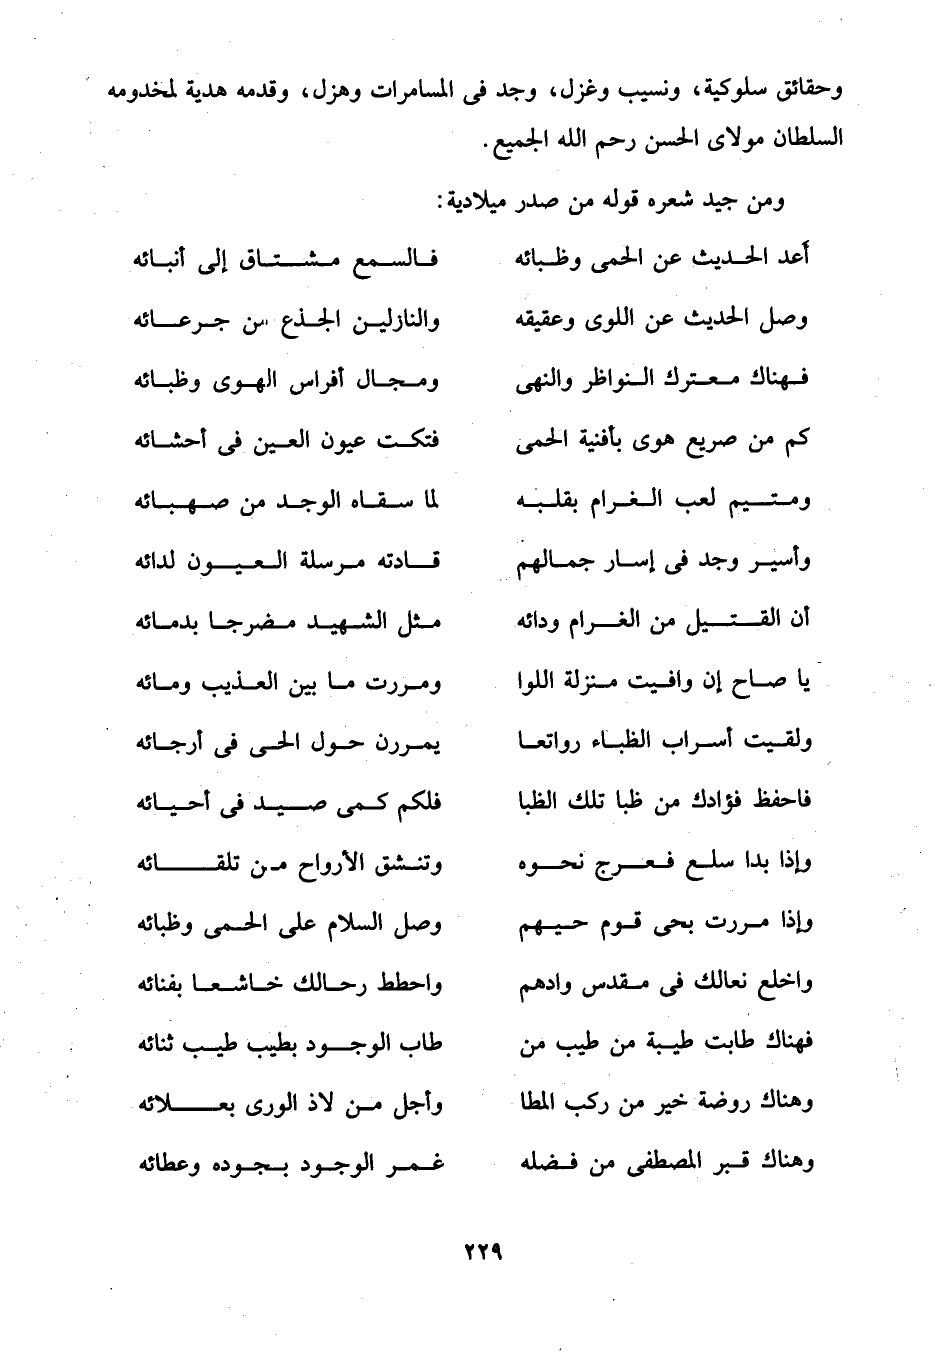 وحقائق سلوكية، ونسيب وغزل، وجد فى المسامرات وهزل، وقدمه هدية لمخدومه
السلطان مولاى الحسن رحم الله الجميع.
ومن جيد شعره قوله من صدر ميلادية:
أعد الحديث عن الحمى وظبائه فالسمع مشتاق إلى أنبائه
وصل الحديث عن اللوى وعقيقه والنازلين الجذع من جرعائه
فهناك معترك النواظر والنهى ومجال أفراس الهوى وظبائه
كم من صريع هوى بأفنية الحمى فتكت عيون العين فى أحشائه
ومتيم لعب الغرام بقلبه لما سقاه الوجد من صهبائه
وأسير وجد فى إسار جمالهم قادته مرسلة العيون لدائه
أن القتيل من الغرام ودائه مثل الشهيد مضرجا بدمائه
يا صاح إن وافيت منزلة اللوا ومررت ما بين العذيب ومائه
ولقيت أسراب الظباء رواتعا يمررن حول الحى فى أرجائه
فاحفظ فؤادك من ظبا تلك الظبا فلكم كمى صيد فى أحيائه
وإذا بدا سلع فعرج نحوه وتنشق الأرواح من تلقائه
وإذا مررت بحى قوم حيهم وصل السلام على الحمى وظبائه
واخلع نعالك فى مقدس وادهم واحطط رحالك خاشعا بفنائه
فهناك طابت طيبة من طيب من طاب الوجود بطيب طيب ثنائه
وهناك روضة خير من ركب المطا وأجل من لاذ الورى بعلائه
وهناك قبر المصطفى من فضله غمر الوجود بجوده وعطائه
٢٢٩